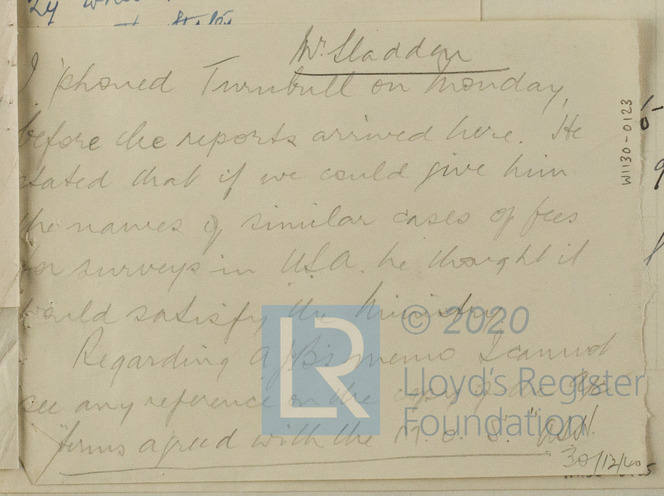 Mr. Sladden
I 'phoned Turnbull on Monday,
before the reports arrived here. He
stated that if we could give him
the names of similar cases of fees
for surveys in U.S.A. he thought it
would satisfy the Ministry
Regarding memo I cannot
see any reference in the
"terms agreed with the M. o. S."
30/12/40
W1130-0123
LR
© 2020
Lloyd's Register
Foundation